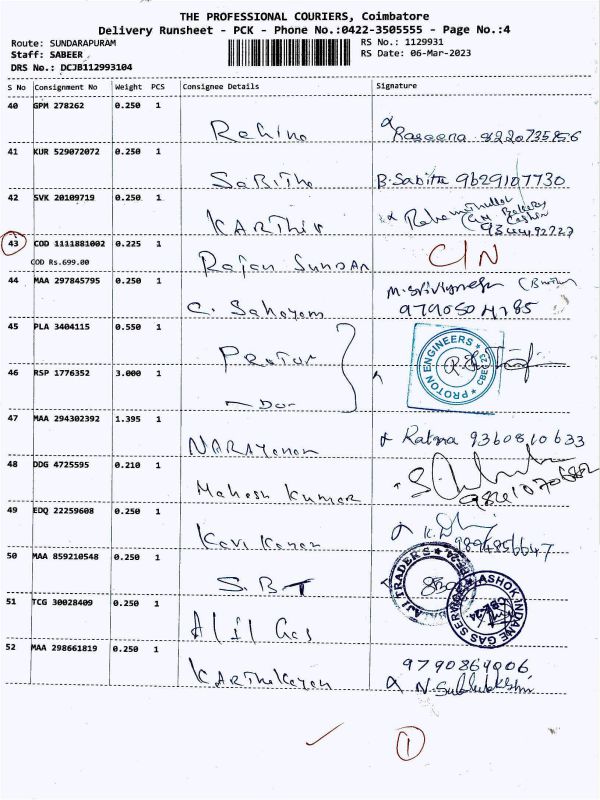 THE PROFESSIONAL COURIERS, Coimbatore
Delivery Runsheet - PCK - Phone No.:0422-3505555 - Page No.:4
Route: SUNDARAPURAM
RS No.: 1129931
Staff: SABEER
RS Date: 06-Mar-2023
DRS No.: DCJB112993104
S No Consignment No Weight PCS Consignee Details Signature
40 GPM 278262 0.250 1
Rehino Raseena 8220735856
41 KUR 529072072 0.250 1
SaBiTha B.Sabitha 9629107730
42 SVK 20109719 0.250 1
KARThik
43 COD 1111881002 0.225 1
COD Rs.699.00
Rajan SundAR C/N
44 MAA 297845795 0.250 1
C. Sahayam
45 PLA 3404115 0.550 1
PROTON ENGINEERS
46 RSP 1776352 3.000 1
47 MAA 294302392 1.395 1
NARAYanan Ratna 9360810633
48 DDG 4725595 0.210 1
Mahesh Kumar
49 EDQ 22259608 0.250 1
Kavi Karan
50 MAA 859210548 0.250 1
S.B.T
51 TCG 30028409 0.250 1
ASHOK INDANE GAS SERVICE
52 MAA 298661819 0.250 1
9790869006
KARThikeyan
1